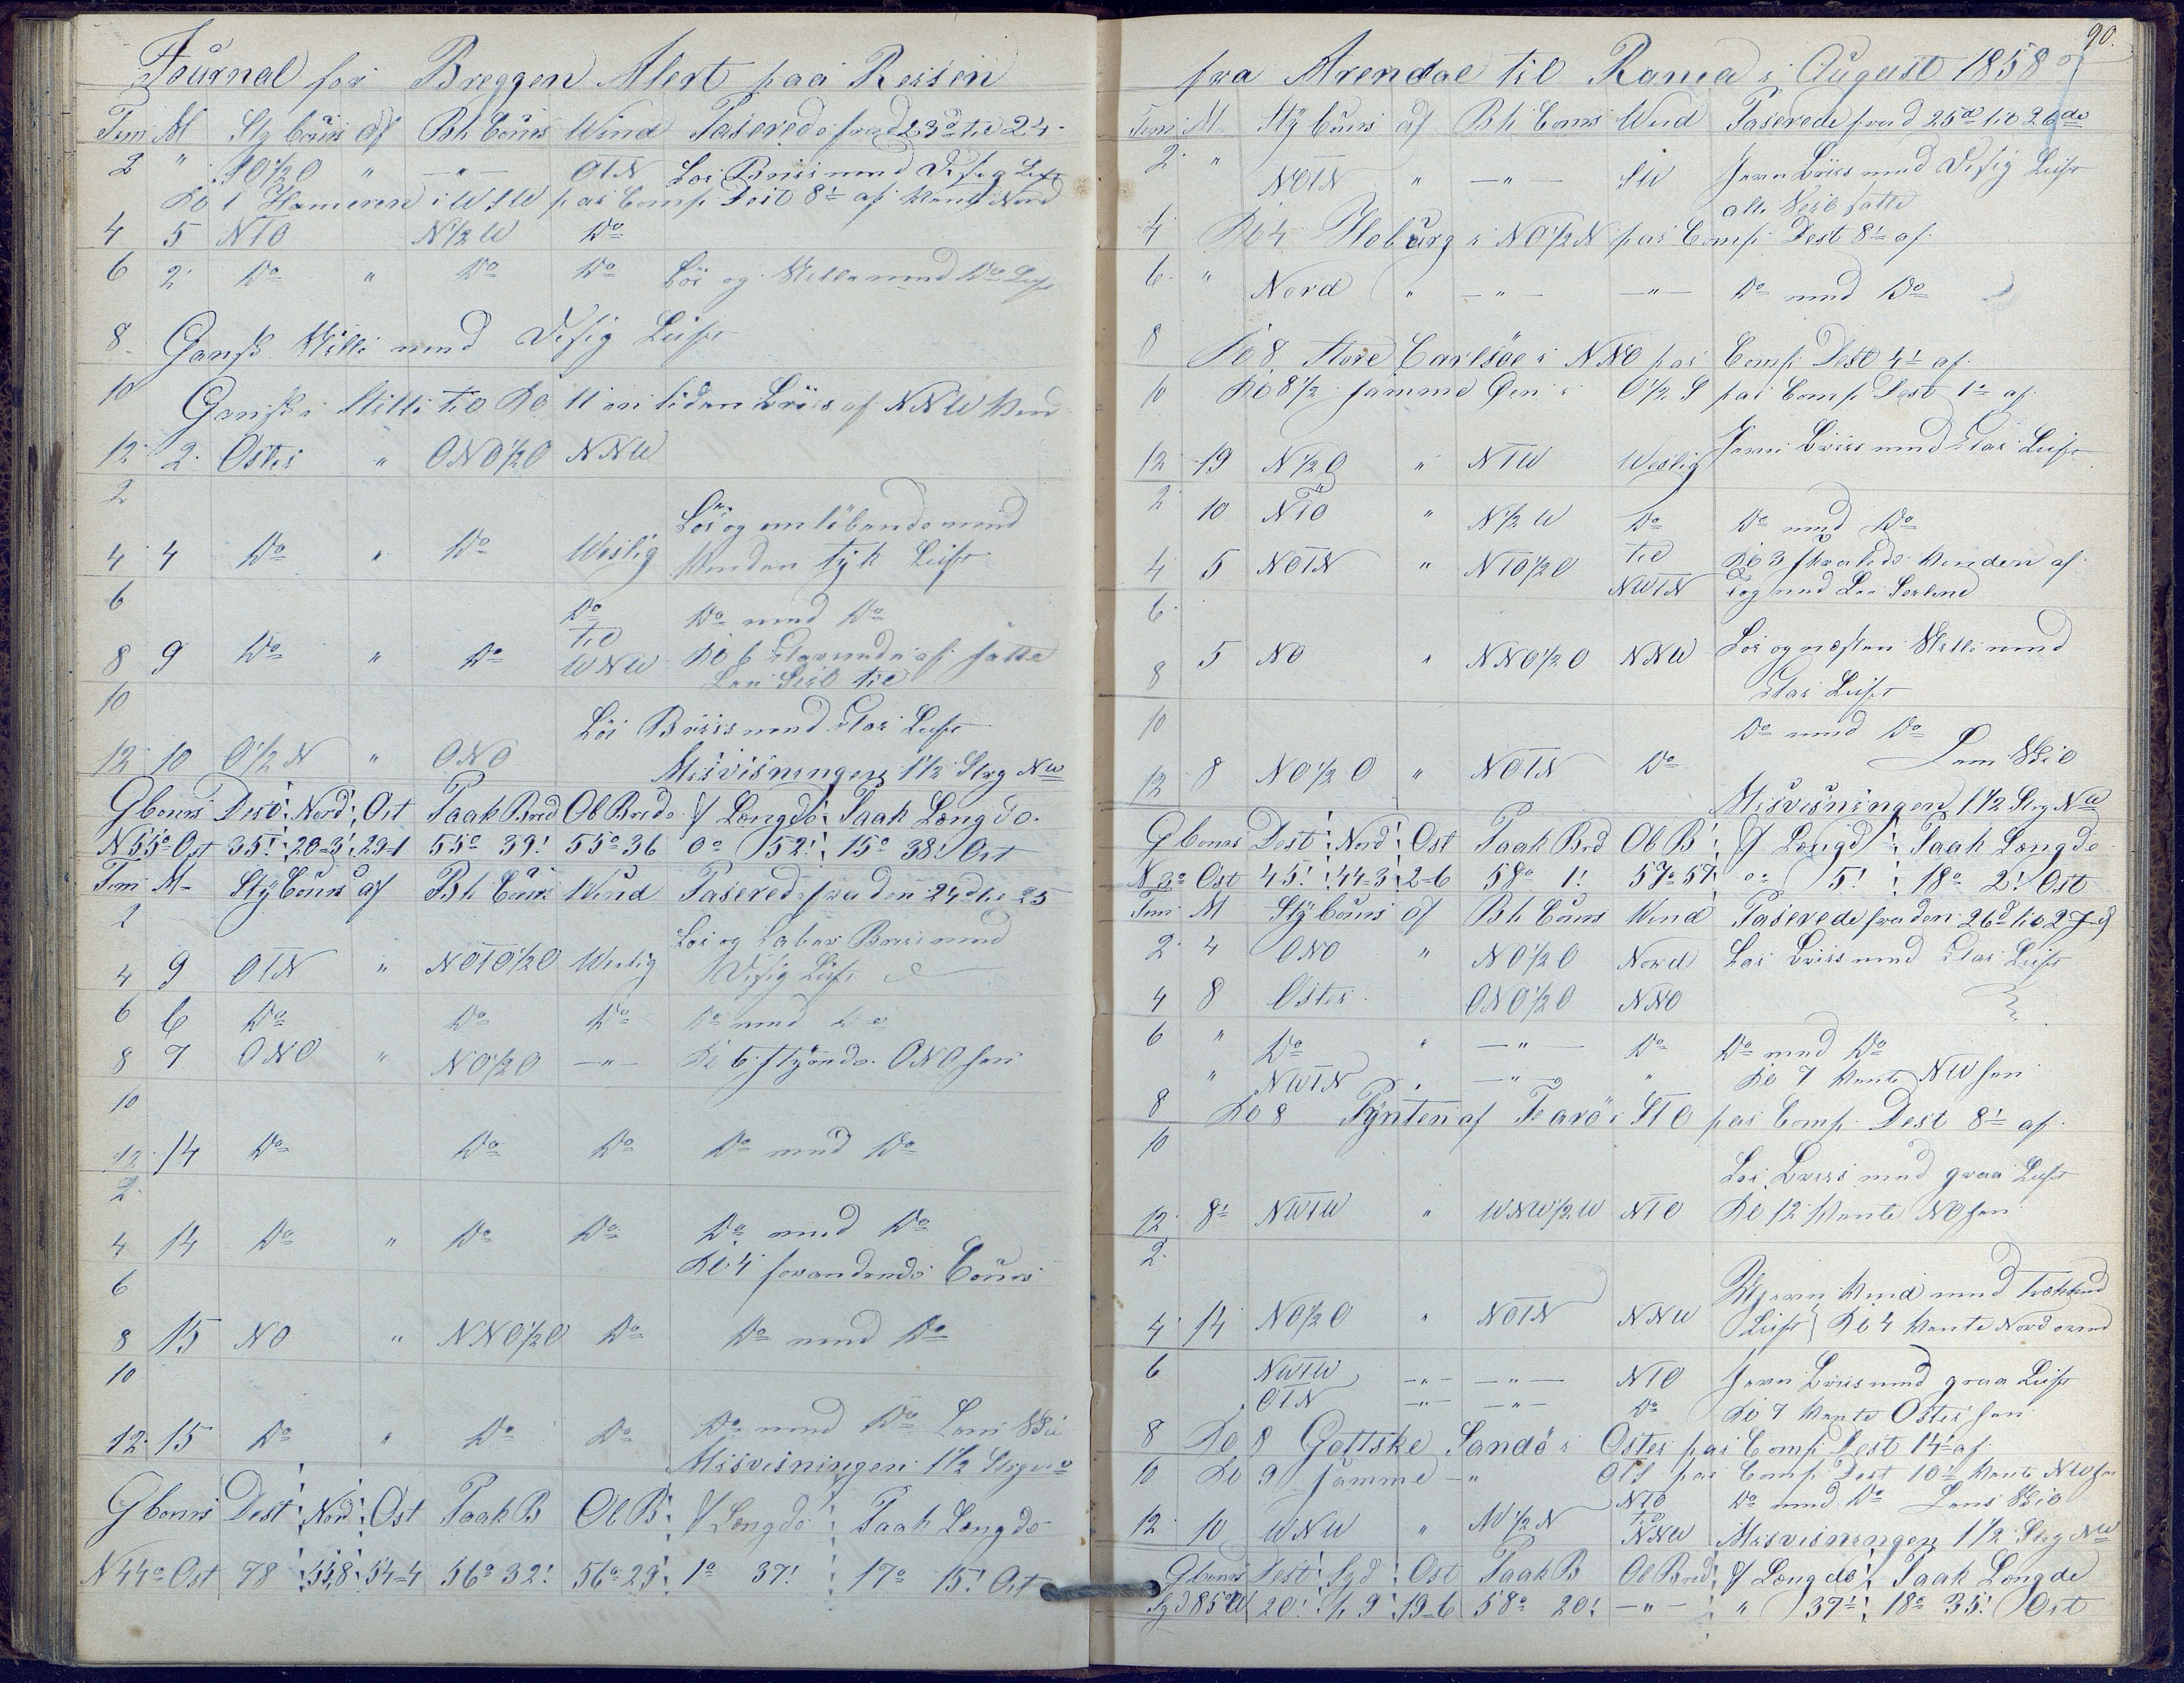 Journal for Breggen Alert paa Reisen
Tim M Sty Cours af Bh Cours Wind Paserede fra d 23d til 24
2 " SO1/2O " — " — OTN Lør Bris med Disig Luft
Ko 1 Hameren i WSW paa Comp Dest 8' af Nord
4 5 NTO N1/2W Do
6 2 Do " Do Do Lör og Stille med Do Luft
8 Gansk Stille med Disig Luft
10 Ganske Stille til Ko 11 en liden Bris af NNW
12 2 Oster " ONO1/2O NNW
2
Lör og om löbende med
4 4 Do " Do Weslig Vinden tyk Luft
6 Do Do med Do
til
8 9 Do " Do WNW Ko 6 af satte
Læ Seil til
10
Lör Bris med klar Luft
12 10 O1/2N " ONO
Misvisningen 1 1/2 Streg NW
G Cours Dest Nord Ost Paak Bred Ob Brede f Længde Paak Længde
N55o Ost 35' 20=3 29=1 55o 39' 55o 36 0o 52' 15o 38' Ost
Tim M Sty Cours af Bh Cours Wind Paserede fra den 24d til 25
2
Lör og Laber Bris med
4 9 OTN " NOTO1/2O Weslig Disig Luft
6 6 Do Do Do Do med Do
8 7 ONO " NO1/2O — " — Ko 6 styrede ONO hen
10
12 14 Do Do Do Do med Do
2
4 14 Do " Do Do Do med Do
Ko 4 forandrede Cours
6
8 15 NO " NNO1/2O Do Do med Do
10
12 15 Do " Do Do Do med Do Læns
Misvisningen 1 1/2 Streg NW
G Cours Dest Nord Ost Paak B Ob B f Længde Paak Længde
N44o Ost 78 55,8 54=4 56o 32' 56o 29' 1o 37' 17o 15' Ost
90.
fra Arendal til Ranea i August 1858
Tim M Sty Cours af Bh Cours Wind Paserede fra d 25d til 26de
2 " NOTN " — " — SW Jevn Bris med Disig Luft
alle Seil satte
4 Ko 4 Hoburg i NO1/2N paa Comp Dest 8' af
6 " Nord " — " — — " — Do med Do
8 Ko 8 Store Carlsöe i NNO paa Comp Dest 4' af
10 Ko 8 1/2 samme Øen i O1/2S paa Comp Dest 1' af
12 19 N1/2O " NTW Weslig Jevn Bris med klar Luft
2 10 NTO " N1/2W Do Do med Do
4 5 NOTN " NTO1/2O til Ko 3 Vinden af
NWTN tog ind Læ Seilene
6
5 NO " NNO1/2O NNW Lör og næsten Stille med
8 klar Luft
10 Do med Do
12 8 NO1/2O " NOTN Do
Misvisningen 1 1/2 Streg NW
G Cours Dest Nord Ost Paak Bred Ob B f Længd Paak Længde
N3o Ost 45' 44=3 2=6 58o 1' 57o 57 0o 5' 18o 2' Ost
Tim M Sty Cours af Bh Cours Wind Paserede fra den 26d til 27d
2 4 ONO " NO1/2O Nord Lör Bris med klar Luft
4 8 Oster ONO1/2O NNO
6 " Do " — " — Do Do med Do
" NWTN " — " — " Ko 7 Vente NW hen
8 Ko 8 Pynten af Farö i STO paa Comp Dest 8' af
10
Lör Bris med graa Luft
12 8' NWTW " WNW1/2W NTO Ko 12 Vente NO hen
2
Vind med
4 14 NO1/2O " NOTN NNW Luft Ko 4 Vente Nord
6 NWTW — " — — " — NTO Jevn Bris med graa Luft
OTN — " — — " — Do Ko 7 Vente Oster hen
8 Ko 8 Gottske Sandö i Oster paa Comp Dest 14' af
10 Ko 9 samme — " OTS paa Comp Dest 10' Vente NW hen
NTO Do med Do Læns
til
12 10 WNW " W1/2N NNW Misvisningen 1 1/2 Streg NW
G Cours Dest Syd Ost Paak B Ob Bred f Længde Paak Længde
Syd 85o W 20' 1,9 19=6 58o 20' — " — " 37' 18o 35' Ost